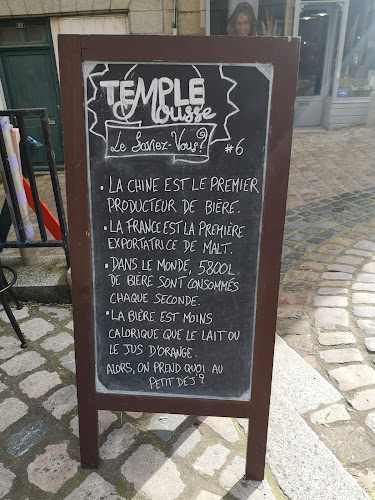 TEMPLE
Mousse
Le Saviez-Vous?
#6
• LA CHINE EST LE PREMIER
PRODUCTEUR DE BIÈRE.
• LA FRANCE EST LA PREMIÈRE
EXPORTATRICE DE MALT.
• DANS LE MONDE, 5800L
DE BIÈRE SONT CONSOMMÉS
CHAQUE SECONDE.
• LA BIÈRE EST MOINS
CALORIQUE QUE LE LAIT OU
LE JUS D'ORANGE.
ALORS, ON PREND QUOI AU
PETIT DEJ'?